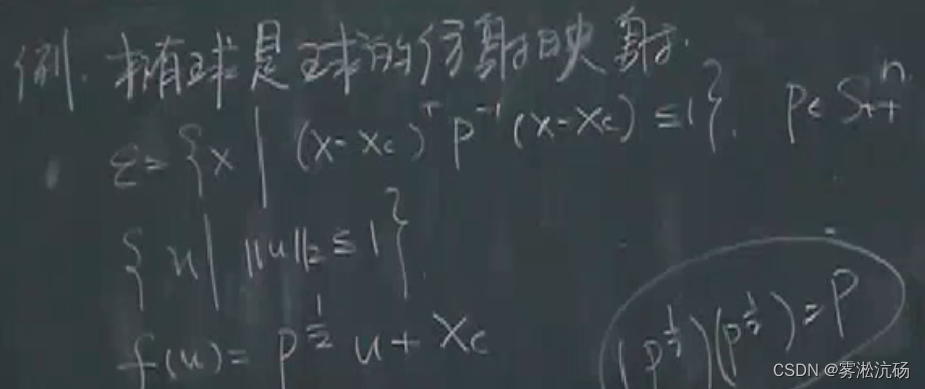 例. 椭球是球的仿射映射.
ε = {x | (x-xc)ᵀ P⁻¹ (x-xc) ≤ 1}. P∈Sⁿ₊₊
{u | ||u||₂ ≤ 1}
f(u) = P^{1/2} u + xc
(P^{1/2})(P^{1/2}) = P
CSDN @雾淞沆砀